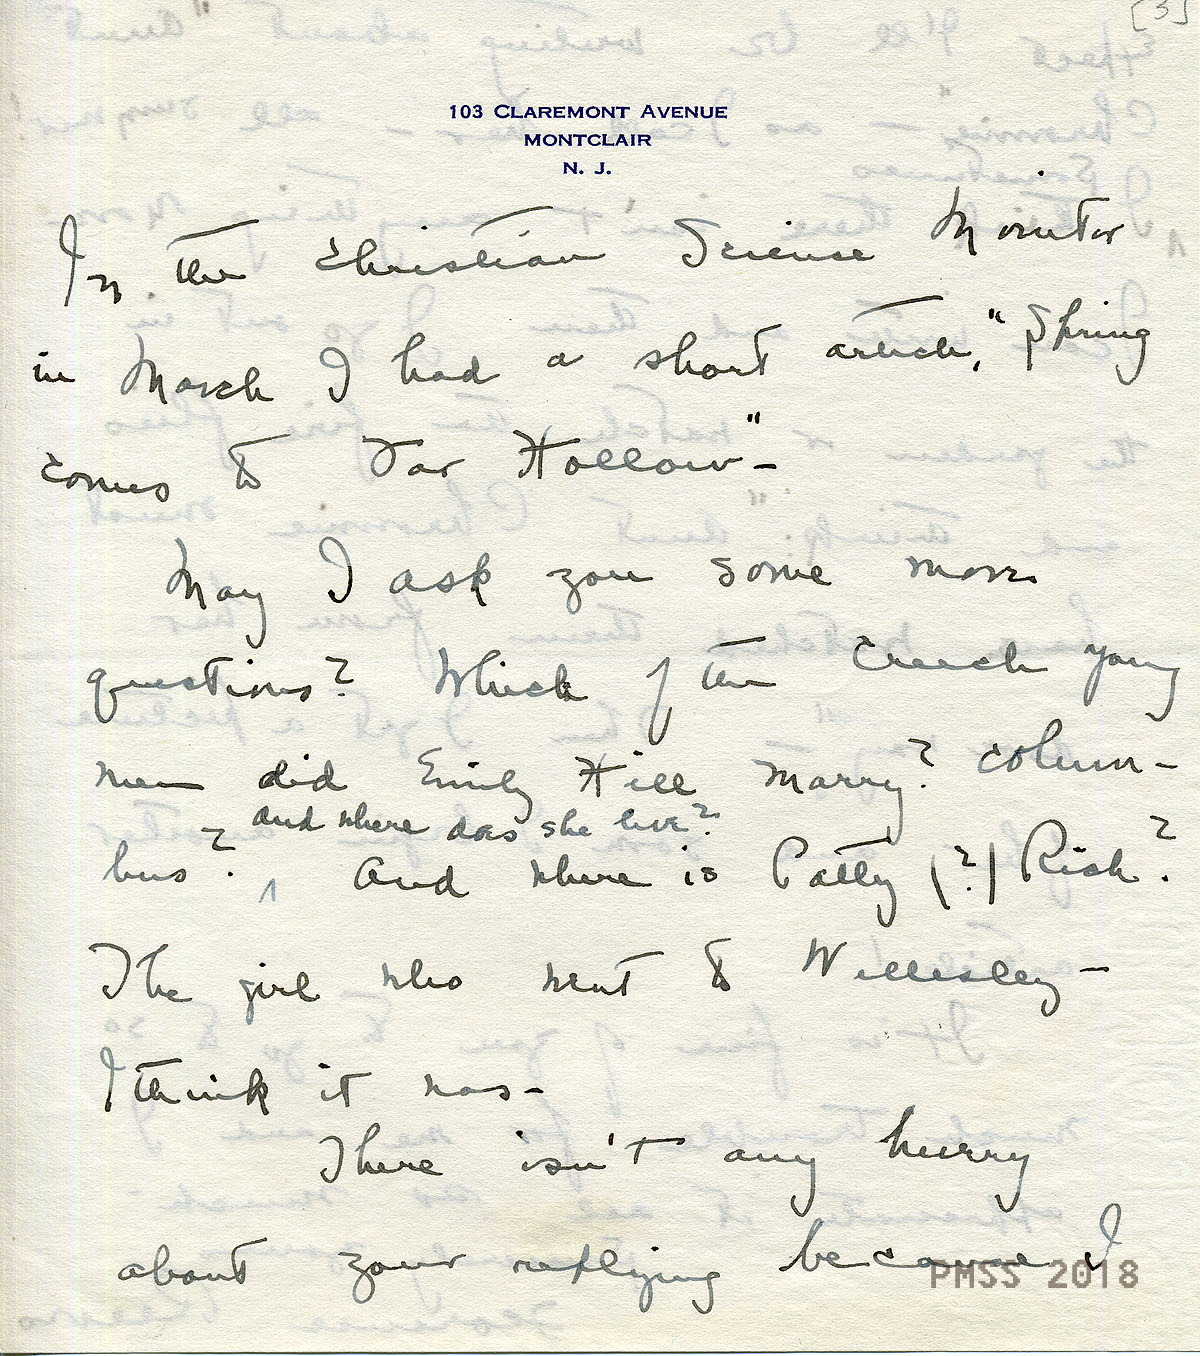 [3]
103 Claremont Avenue
Montclair
N. J.
In the Christian Science Monitor
in March I had a short article, "Spring
comes to Far Hollow" -
May I ask you some more
questions? Which of the Creech young
men did Emily Hill marry? Colum-
and where does she live?
bus? ^ And where is Patty (?) Risk?
The girl who went to Wellesley -
I think it was -
There isn't any hurry
about your replying because I
PMSS 2018